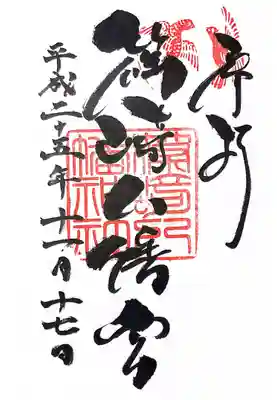 奉拝
篠崎八幡宮
平成二十五年十一月十七日